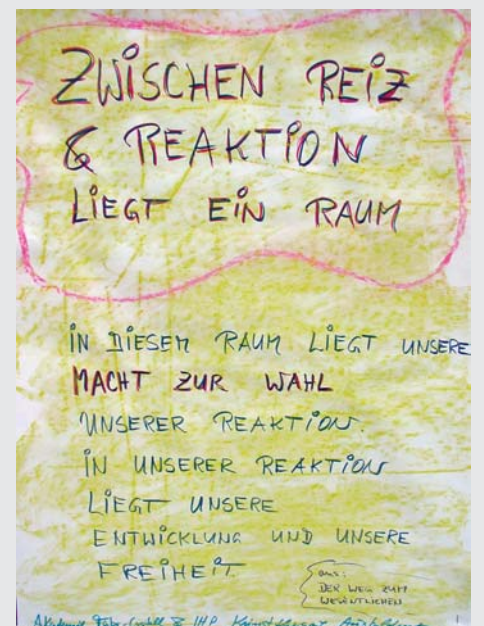 ZWISCHEN REIZ
& REAKTION
LIEGT EIN RAUM
IN DIESEM RAUM LIEGT UNSERE
MACHT ZUR WAHL
UNSERER REAKTION.
IN UNSERER REAKTION
LIEGT UNSERE
ENTWICKLUNG UND UNSERE
FREIHEIT.
aus:
DER WEG ZUM
WESENTLICHEN
Akademie Faber-Castell & IHP